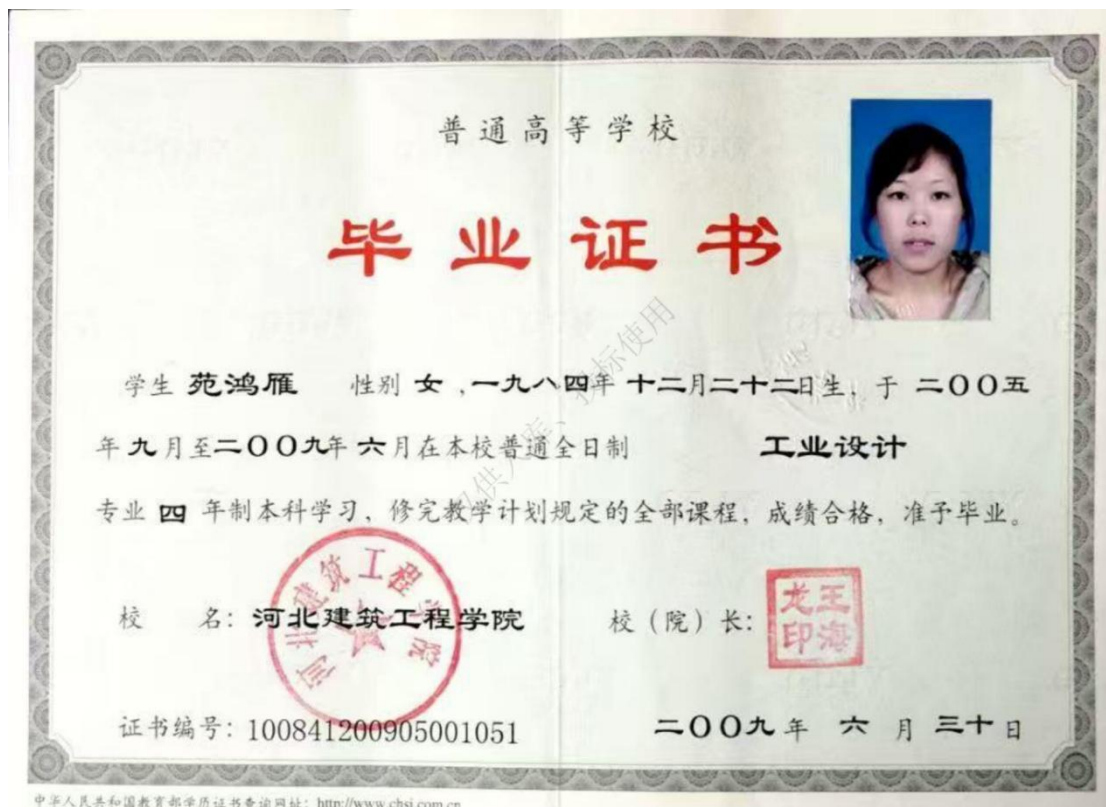 普通高等学校
毕业证书
学生 苑鸿雁 性别 女 ,一九八四年 十二月二十二日生, 于 二〇〇五
年九月至二〇〇九年 六月在本校普通全日制 工业设计
专业 四 年制本科学习, 修完教学计划规定的全部课程, 成绩合格, 准予毕业。
仅供入库、投标使用
河北建筑工程学院
校 名: 河北建筑工程学院 校(院)长:
王海龙印
证书编号: 100841200905001051 二〇〇九年 六 月 三十日
中华人民共和国教育部学历证书查询网址: http://www.chsi.com.cn